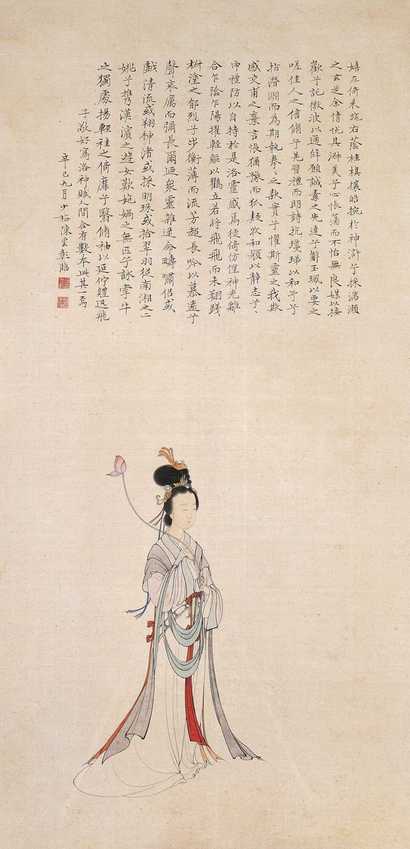 嬉左倚采旄右蔭桂旗攘皓捥於神滸兮採湍瀨
之玄芝余情悅其淑美兮心振蕩而不怡無良媒以接
歡兮託微波以通辭願誠素之先達兮解玉珮以要之
嗟佳人之信脩兮羌習禮而明詩抗瓊珶以和予兮
指潛淵而為期執拳拳之款實兮懼斯靈之我欺
感交甫之棄言悵猶豫而狐疑收和顏以靜志兮
申禮防以自持於是洛靈感焉徙倚仿偟神光離
合乍陰乍陽擢輕軀以鶴立若將飛而未翔踐
椒塗之郁烈兮步衡薄而流芳超長吟以慕遠兮
聲哀厲而彌長爾迺衆靈雜遝命疇嘯侶或
戲清流或翔神渚或採明珠或拾翠羽從南湘之二
姚兮携漢濱之遊女歎媧之無匹兮詠牽牛
之獨處揚輕袿之倚靡兮翳脩袖以延佇體迅飛
子敬好寫洛神賦人間合有數本此其一焉
辛巳九月少梅陳雲彰臨